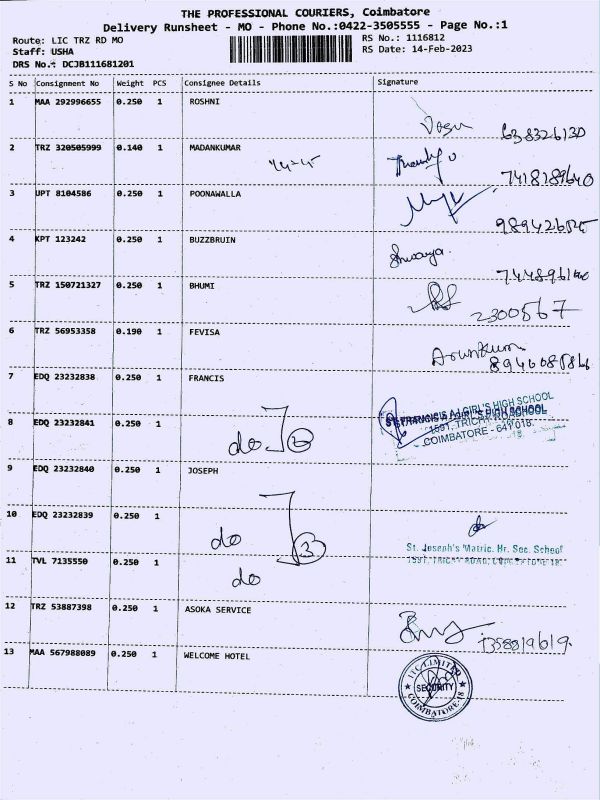 THE PROFESSIONAL COURIERS, Coimbatore
Delivery Runsheet - MO - Phone No.:0422-3505555 - Page No.:1
Route: LIC TRZ RD MO RS No.: 1116812
Staff: USHA RS Date: 14-Feb-2023
DRS No.: DCJB111681201
S No Consignment No Weight PCS Consignee Details Signature
1 MAA 292996655 0.250 1 ROSHNI
638326130
2 TRZ 320505999 0.140 1 MADANKUMAR
7418189640
3 UPT 8104586 0.250 1 POONAWALLA
4 KPT 123242 0.250 1 BUZZBRUIN
5 TRZ 150721327 0.250 1 BHUMI
2300567
6 TRZ 56953358 0.190 1 FEVISA
Arunkumar
7 EDQ 23232838 0.250 1 FRANCIS
8 EDQ 23232841 0.250 1
do 2
ST.FRANCIS'S A.I GIRL'S HIGH SCHOOL
1591, TRICHY ROAD
COIMBATORE - 641 018.
9 EDQ 23232840 0.250 1 JOSEPH
10 EDQ 23232839 0.250 1
do 3
St. Joseph's Matric. Hr. Sec. School
1591, TRICHY ROAD, COIMBATORE 18
11 TVL 7135550 0.250 1
do
12 TRZ 53887398 0.250 1 ASOKA SERVICE
13 MAA 567988089 0.250 1 WELCOME HOTEL
ITC LIMITED
SECURITY
COIMBATORE-18